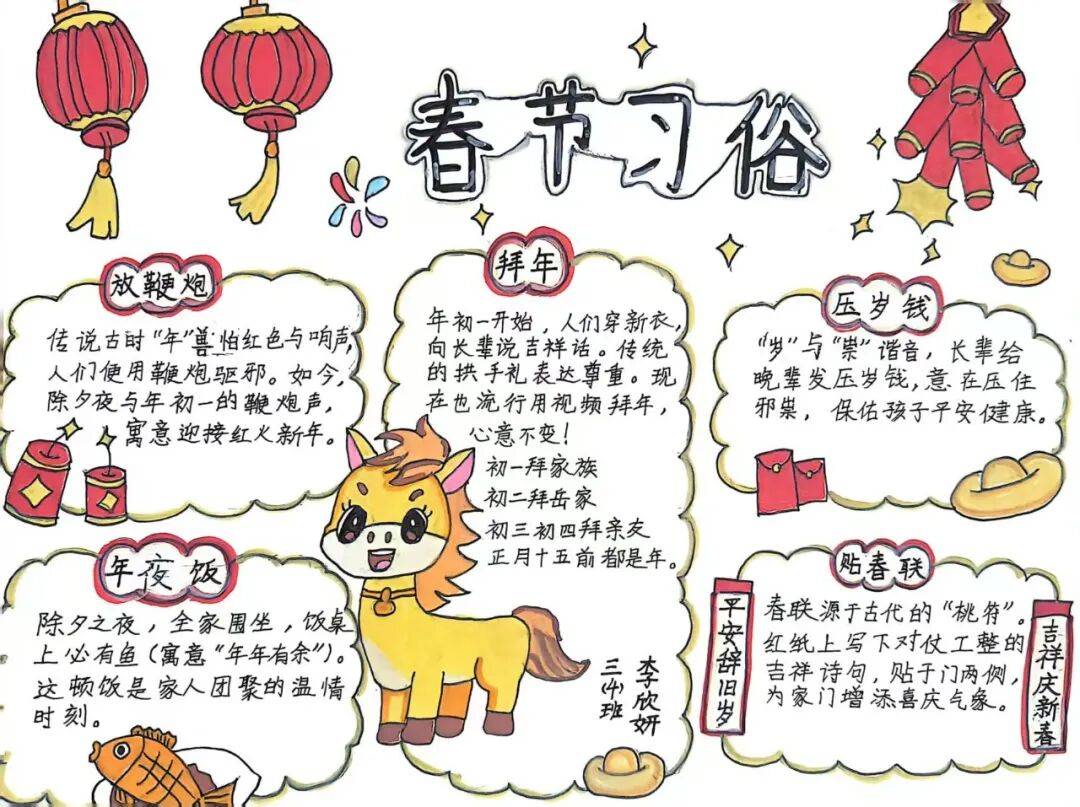 春节习俗
放鞭炮
传说古时“年”兽怕红色与响声,
人们便用鞭炮驱邪。如今,
除夕夜与年初一的鞭炮声,
寓意迎接红火新年。
年夜饭
除夕之夜，全家围坐，饭桌
上必有鱼(寓意“年年有余”)。
这顿饭是家人团聚的温情
时刻。
拜年
年初一开始，人们穿新衣,
向长辈说吉祥话。传统
的拱手礼表达尊重。现
在也流行用视频拜年,
心意不变!
初一拜家族
初二拜岳家
初三初四拜亲友
正月十五前都是年。
三(4)班
李欣妍
压岁钱
“岁”与“祟”谐音，长辈给
晚辈发压岁钱,意在压住
邪祟，保佑孩子平安健康。
贴春联
平安辞旧岁
春联源于古代的“桃符”。
红纸上写下对仗工整的
吉祥诗句，贴于门两侧,
为家门增添喜庆气象。
吉祥庆新春